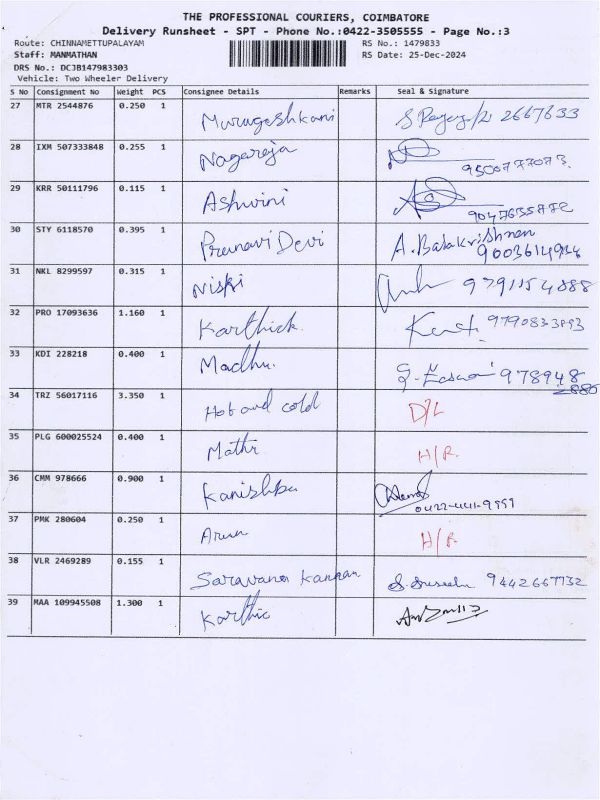 THE PROFESSIONAL COURIERS, COIMBATORE
Delivery Runsheet - SPT - Phone No.:0422-3505555 - Page No.:3
Route: CHINNAMETTUPALAYAM RS No.: 1479833
Staff: MANMATHAN RS Date: 25-Dec-2024
DRS No.: DCJB147983303
Vehicle: Two Wheeler Delivery
S No Consignment No Weight PCS Consignee Details Remarks Seal & Signature
27 MTR 2544876 0.250 1 Murugeshkani 2667633
28 IXM 507333848 0.255 1 Nagaraja
9500777073.
29 KRR 50111796 0.115 1 Ashwini
9047635772
30 STY 6118570 0.395 1 Pranavi Devi A. Balakrishnan
9003614926
31 NKL 8299597 0.315 1 9791154888
32 PRO 17093636 1.160 1 Karthick. 9790833893
33 KDI 228218 0.400 1 Madhu. 978948
2886
34 TRZ 56017116 3.350 1 Hot and cold D/L
35 PLG 600025524 0.400 1 H/R.
36 CMM 978666 0.900 1 Kanishka
0422-4411-9999
37 PMK 280604 0.250 1 Arun H/R.
38 VLR 2469289 0.155 1 Saravana Kannan 9442667732
39 MAA 109945508 1.300 1 Karthic